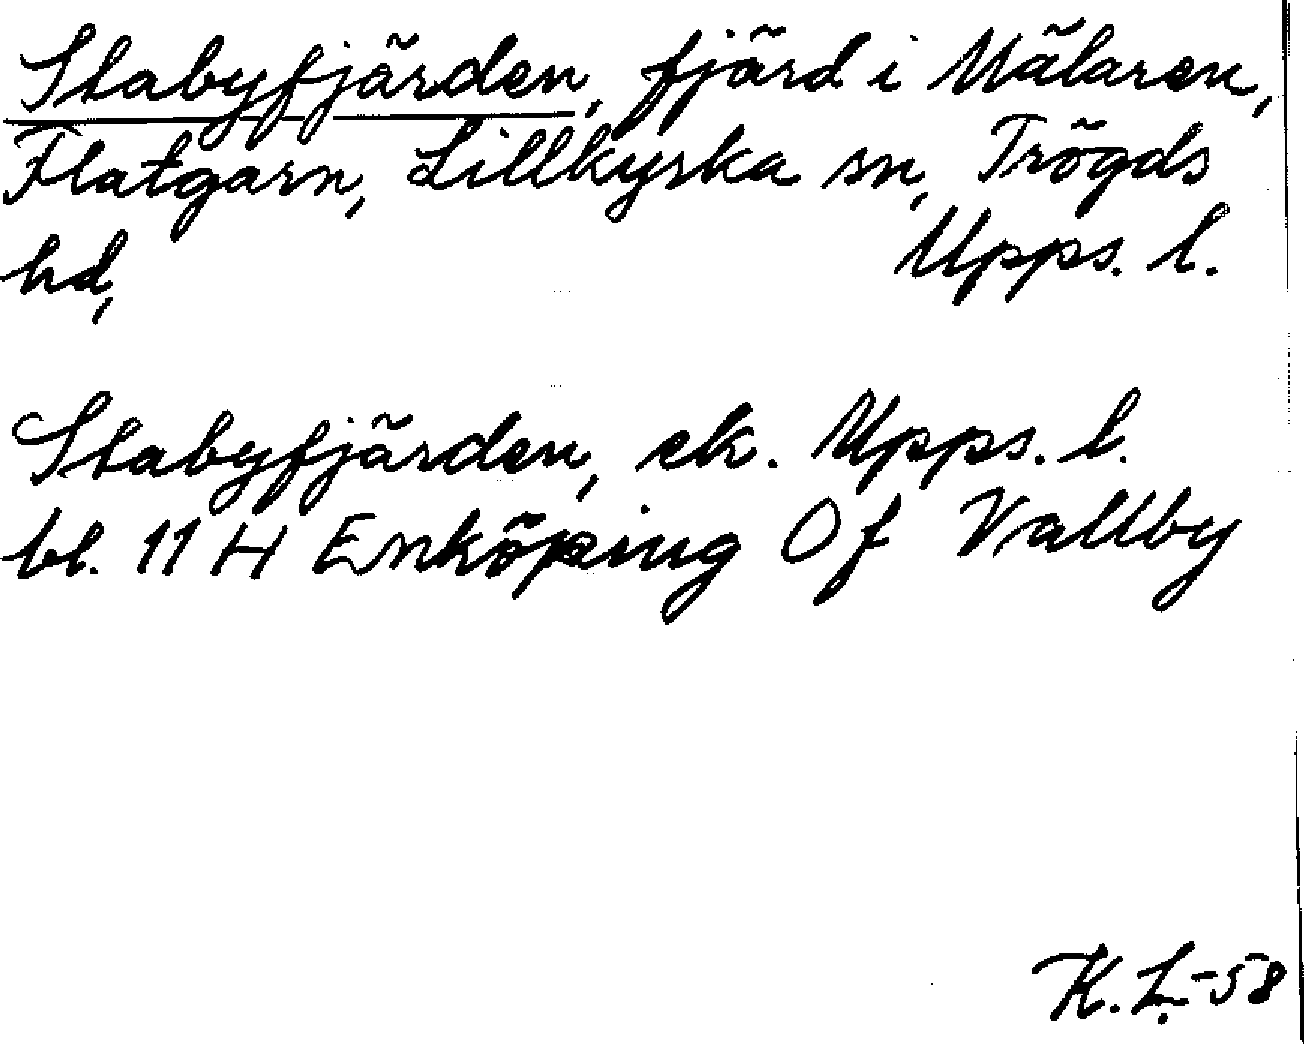 Stabyfjärden, fjärd i Mälaren,
Flatgarn, Lillkyrka sn, Trögds
hd, Upps. l.
Stabyfjärden, ek. Upps. l.
bl. 11 H Enköping Of Vallby
K. L. -58